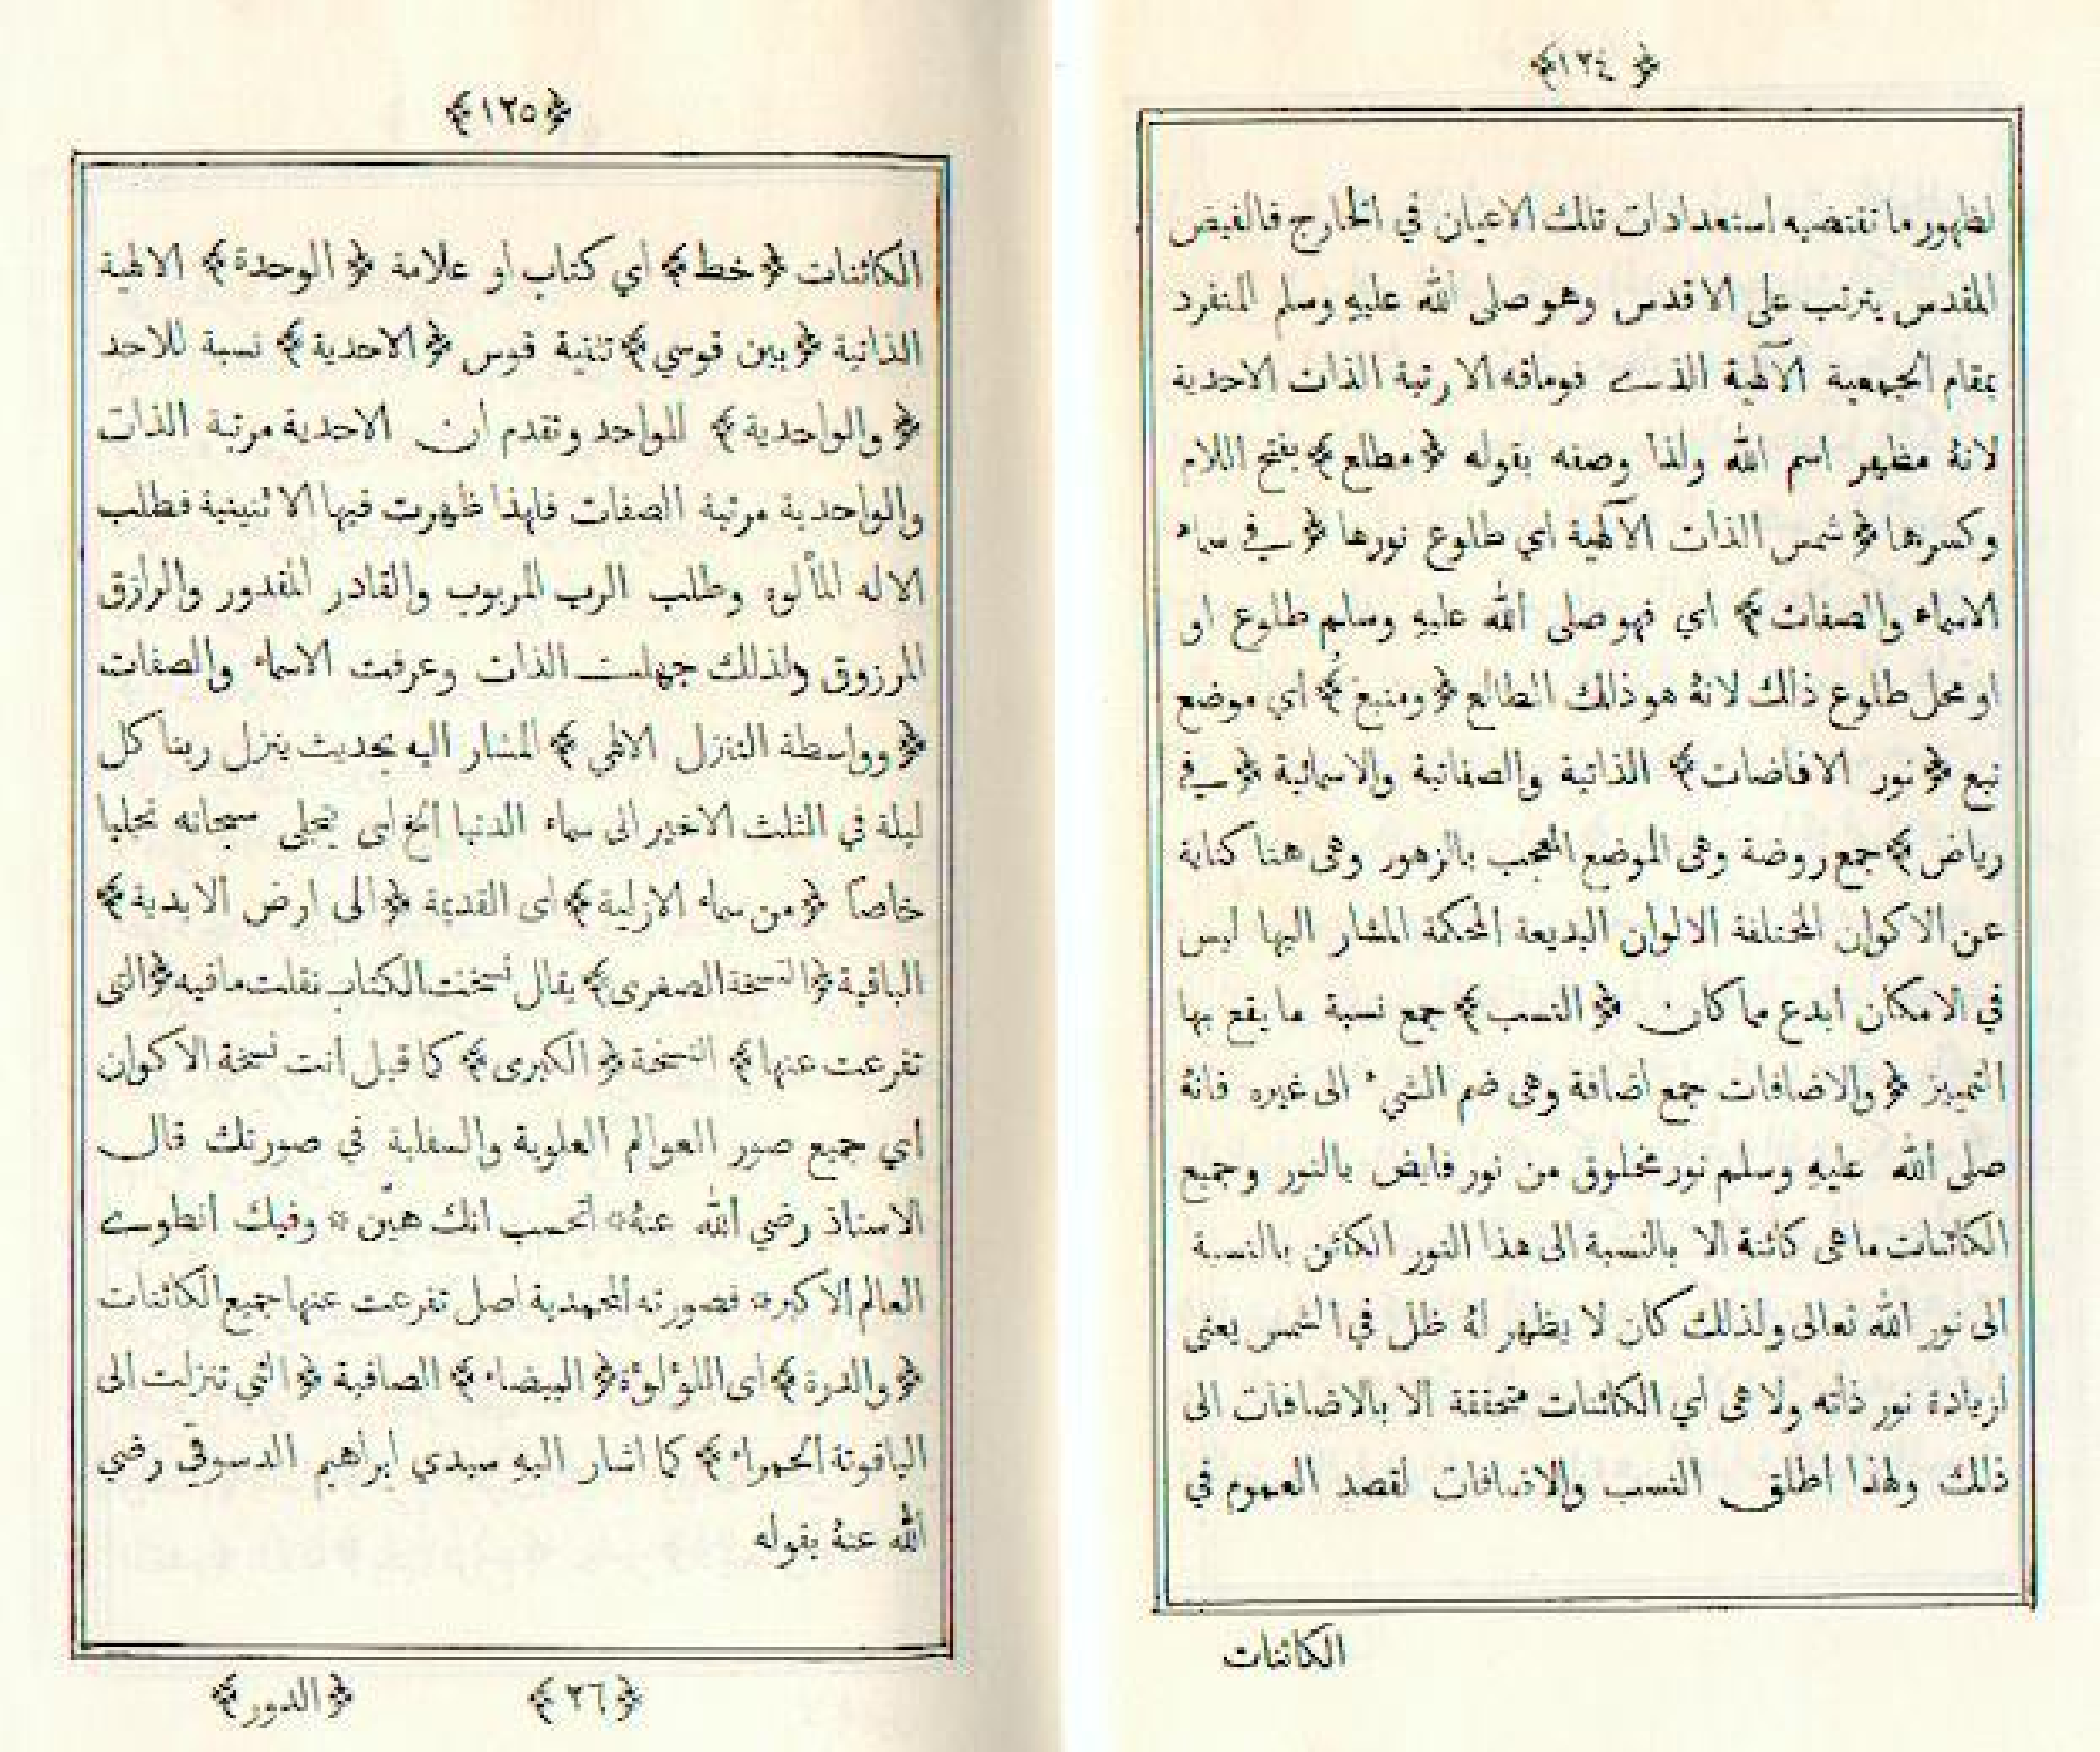 ﴿١٢٤﴾
لظهور ما تقتضيه استعدادات تلك الاعيان في الخارج فالفيض
المقدس يترتب على الاقدس وهو صلى الله عليه وسلم المنفرد
بمقام الجمعية الآلهية الذي فوماقه الا رتبة الذات الاحدية
لانهُ مظهر اسم الله ولذا وصفه بقوله ﴿مطلع﴾ بفتح اللام
وكسرها ﴿شمس الذات الآلهية اي طلوع نورها ﴿في سماء
الاسماء والصفات﴾ اي فهو صلى الله عليهِ وسلم طلوع او
او محل طلوع ذلك لانهُ هو ذلك الطالع ﴿ومنبع﴾ اي موضع
نبع ﴿نور الافاضات﴾ الذاتية والصفاتية والاسمائية ﴿في
رياض﴾ جمع روضة وهى الموضع المعجب بالزهور وهى هنا كناية
عن الاكوان المختلفة الالوان البديعة المحكمة المشار اليها ليس
في الامكان ابدع مما كان ﴿النسب﴾ جمع نسبة ما يقع بها
التمييز ﴿والاضافات جمع اضافة وهى ضم الشيء الى غيره فانهُ
صلى الله عليهِ وسلم نور مخلوق من نور فايض بالنور وجميع
الكائنات ما هى كائنة الا بالنسبة الى هذا النور الكائن بالنسبة
الى نور الله تعالى ولذلك كان لا يظهر لهُ ظل في الشمس يعنى
لزيادة نور ذاته ولا هى اي الكائنات متحققة الا بالاضافات الى
ذلك ولهذا اطلق النسب والاضافات لقصد العموم في
الكائنات
﴿١٢٥﴾
الكائنات ﴿خط﴾ أي كتاب أو علامة ﴿الوحدة﴾ الالهية
الذاتية ﴿بين قوسي﴾ تثنية قوس ﴿الاحدية﴾ نسبة للاحد
﴿والواحدية﴾ للواحد وتقدم أن الاحدية مرتبة الذات
والواحدية مرتبة الصفات فلهذا ظهرت فيها الاثنينية فطلب
الاله المألوه وطلب الرب المربوب والقادر المقدور والرازق
المرزوق ولذلك جهلت الذات وعرفت الاسماء والصفات
﴿وواسطة التنزل الالهي﴾ المشار اليه بحديث ينزل ربنا كل
ليلة في الثلث الاخير الى سماء الدنيا الخ اى يتجلى سبحانه تجليا
خاصاً ﴿من سماء الازلية﴾ اى القديمة ﴿الى ارض الابدية﴾
الباقية ﴿النسخة الصغرى﴾ يقال نسخت الكتاب نقلت ما فيه ﴿التى
تفرعت عنها﴾ النسخة ﴿الكبرى﴾ كما قيل أنت نسخة الاكوان
اي جميع صور العوالم العلوية والسفلية في صورتك قال
الاستاذ رضي الله عنهُ * اتحسب انك هيّن * وفيك انطوى
العالم الاكبر * فصورته المحمدية اصل تفرعت عنها جميع الكائنات
﴿والدرة﴾ اى اللؤلؤة ﴿البيضاء﴾ الصافية ﴿التي تنزلت الى
الياقوتة الحمراء﴾ كما اشار اليهِ سيدي ابراهيم الدسوقي رضي
الله عنهُ بقوله
﴿٢٦﴾ ﴿الدور﴾